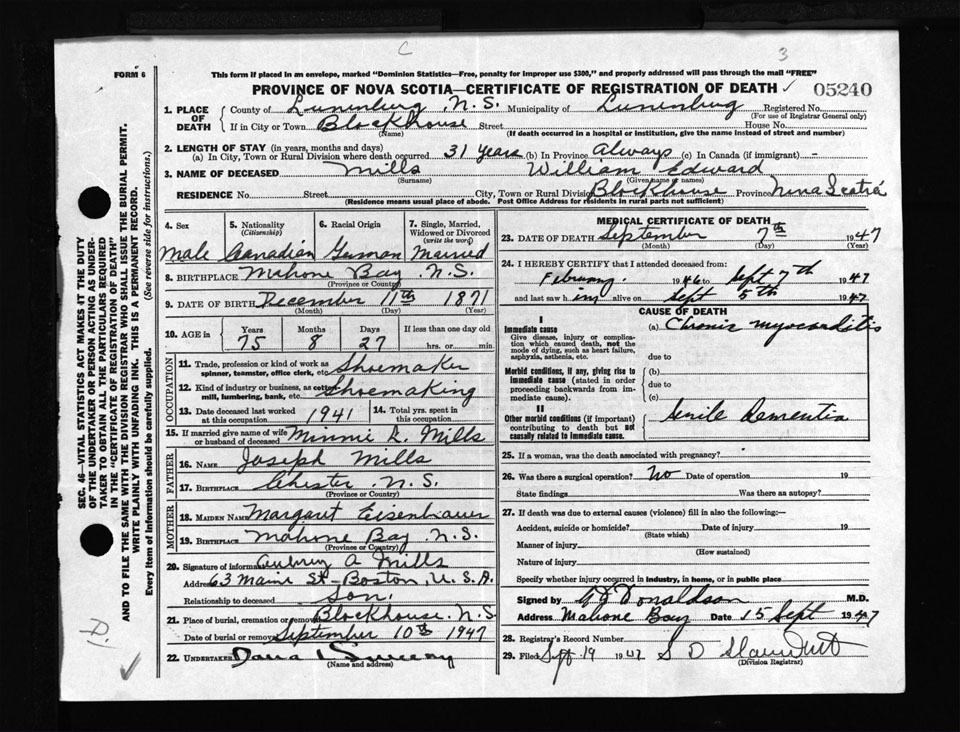 C
3
FORM 6
This form if placed in an envelope, marked "Dominion Statistics—Free, penalty for improper use $300," and properly addressed will pass through the mail "FREE"
PROVINCE OF NOVA SCOTIA—CERTIFICATE OF REGISTRATION OF DEATH ✓ 05240
1. PLACE OF DEATH
County of Lunenburg N.S. Municipality of Lunenburg Registered No.
(For use of Registrar General only)
If in City or Town Blockhouse Street House No.
(Name) (If death occurred in a hospital or institution, give the name instead of street and number)
2. LENGTH OF STAY (in years, months and days)
(a) In City, Town or Rural Division where death occurred 31 Years (b) In Province Always (c) In Canada (if immigrant) -
3. NAME OF DECEASED Mills William Edward
(Surname) (Given name or names)
RESIDENCE No. Street City, Town or Rural Division Blockhouse Province Nova Scotia
(Residence means usual place of abode. Post Office Address for residents in rural parts not sufficient)
4. Sex
Male
5. Nationality
(Citizenship)
Canadian
6. Racial Origin
German
7. Single, Married, Widowed or Divorced
(write the word)
Married
8. BIRTHPLACE Mahone Bay N.S.
(Province or Country)
9. DATE OF BIRTH December 11th 1871
(Month) (Day) (Year)
10. AGE in
Years Months Days If less than one day old
75 8 27 hrs. or min.
OCCUPATION
11. Trade, profession or kind of work as Shoemaker
spinner, teamster, office clerk, etc.
12. Kind of industry or business, as cotton mill, lumbering, bank, etc. Shoemaking
13. Date deceased last worked at this occupation 1941
14. Total yrs. spent in this occupation
15. If married give name of wife or husband of deceased Minnie L. Mills
FATHER
16. NAME Joseph Mills
17. BIRTHPLACE Chester N.S.
(Province or Country)
MOTHER
18. MAIDEN NAME Margaret Eisenhauer
19. BIRTHPLACE Mahone Bay N.S.
(Province or Country)
20. Signature of informant Aubrey A Mills
Address 63 Maine St - Boston, U.S.A.
Relationship to deceased Son.
21. Place of burial, cremation or removal Blockhouse N.S
Date of burial or removal September 10th 1947
22. UNDERTAKER Dana Sweeny
(Name and address)
MEDICAL CERTIFICATE OF DEATH
23. DATE OF DEATH September 7th 1947
(Month) (Day) (Year)
24. I HEREBY CERTIFY that I attended deceased from:
February 1946 to Sept 7th 1947
and last saw him alive on Sept 5th 1947
CAUSE OF DEATH
I
Immediate cause
Give disease, injury or complication which caused death, not the mode of dying, such as heart failure, asphyxia, asthenia, etc.
(a) Chronic myocarditis
due to
Morbid conditions, if any, giving rise to immediate cause (stated in order proceeding backwards from immediate cause).
(b)
due to
(c)
II
Other morbid conditions (if important) contributing to death but not causally related to immediate cause.
Senile Dementia
25. If a woman, was the death associated with pregnancy?
26. Was there a surgical operation? No Date of operation 19
State findings Was there an autopsy?
27. If death was due to external causes (violence) fill in also the following:—
Accident, suicide or homicide? Date of injury 19
(State which)
Manner of injury
(How sustained)
Nature of injury
Specify whether injury occurred in industry, in home, or in public place
Signed by Donaldson M.D.
Address Mahone Bay Date 15 Sept 1947
28. Registrar's Record Number
29. Filed Sept 19 1947 S D
(Division Registrar)
SEC. 46—VITAL STATISTICS ACT MAKES IT THE DUTY
OF THE UNDERTAKER OR PERSON ACTING AS UNDER-
TAKER TO OBTAIN ALL THE PARTICULARS REQUIRED
IN THE "CERTIFICATE OF REGISTRATION OF DEATH"
AND TO FILE THE SAME WITH THE DIVISION REGISTRAR WHO SHALL ISSUE THE BURIAL PERMIT.
WRITE PLAINLY WITH UNFADING INK. THIS IS A PERMANENT RECORD.
Every item of information should be carefully supplied. (See reverse side for instructions.)
D.
✓